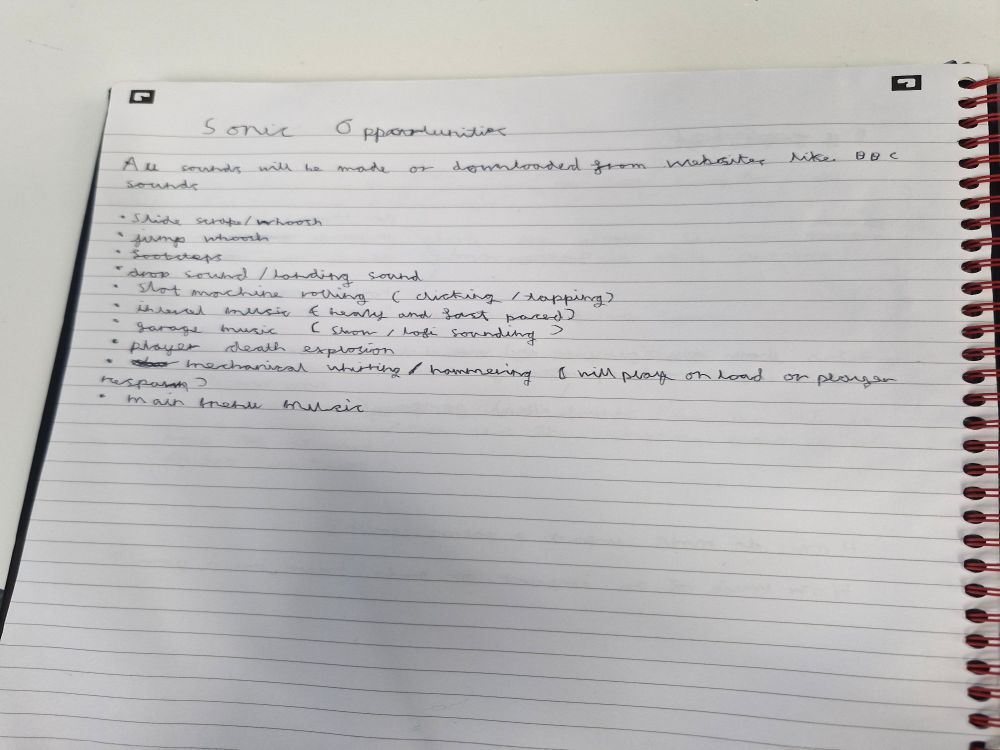 Sonic Opportunities
All sounds will be made or downloaded from websites like BBC
sounds
• Slide scrape/whoosh
• jump whoosh
• footsteps
• drop sound / landing sound
• Slot machine rolling ( clicking / tapping)
• inlevel music ( heavy and fast paced)
• garage music ( slow / lofi sounding )
• player death explosion
• mechanical whirring / hammering ( will play on load or player
respawn)
• main menu music